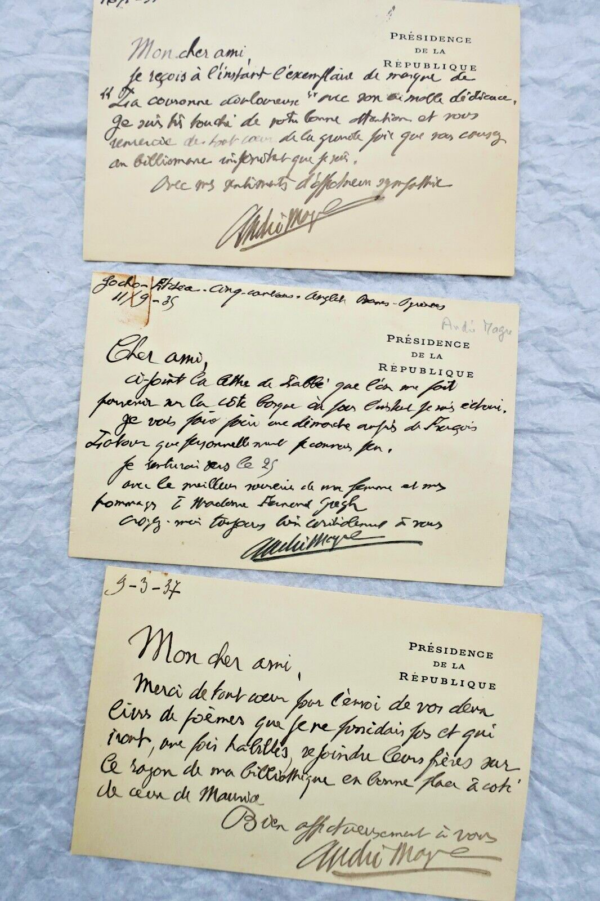 PRÉSIDENCE
DE LA
RÉPUBLIQUE
Mon cher ami,
Je reçois à l'instant l'exemplaire de marque de
"La couronne douloureuse" avec son aimable dédicace.
Je suis très touché de votre bonne attention et vous
remercie de tout coeur de la grande joie que vous causez
au bibliomane impénitent que je suis.
Avec mes sentiments d'affectueuse sympathie
André Magre
11/9-35
André Magre
PRÉSIDENCE
DE LA
RÉPUBLIQUE
Cher ami,
ci-joint la lettre de l'abbé que l'on me fait
parvenir sur la côte basque où pour l'instant je suis
Je vais faire faire une démarche auprès de François
que personnellement je connais peu.
Je rentrerai vers le 25
avec le meilleur souvenir de ma femme et mes
hommages à Madame Fernand Gregh
croyez-moi toujours bien cordialement à vous
André Magre
9-3-37
PRÉSIDENCE
DE LA
RÉPUBLIQUE
Mon cher ami,
Merci de tout coeur pour l'envoi de vos deux
livres de poèmes que je ne possédais pas et qui
iront, une fois habillés, rejoindre leurs frères sur
le rayon de ma bibliothèque en bonne place à coté
de ceux de Maurice
Bien affectueusement à vous
André Magre